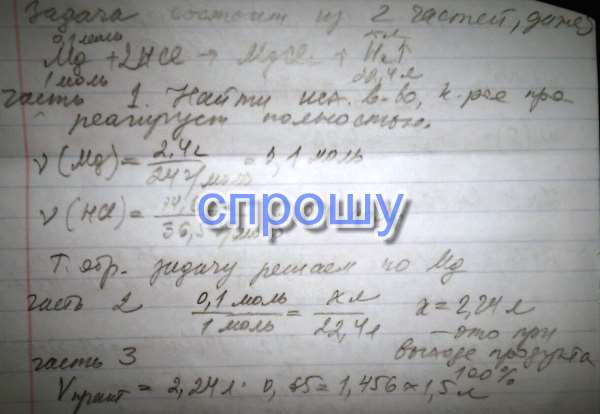 Задача состоит из 2 частей, даже
0,1 моль x л
Mg + 2HCl → MgCl₂ + H₂↑
1 моль 22,4 л
часть 1. Найти исх. в-во, к-рое про-
реагирует полностью.
ν(Mg) = 2,4 г / 24 г/моль = 0,1 моль
ν(HCl) = 36,5 г/моль
спрошу
Т. обр. задачу решаем по Mg
часть 2 0,1 моль / 1 моль = x л / 22,4 л x = 2,24 л
– это при
выходе продукта
100%
часть 3
V практ = 2,24 л · 0,65 = 1,456 ≈ 1,5 л